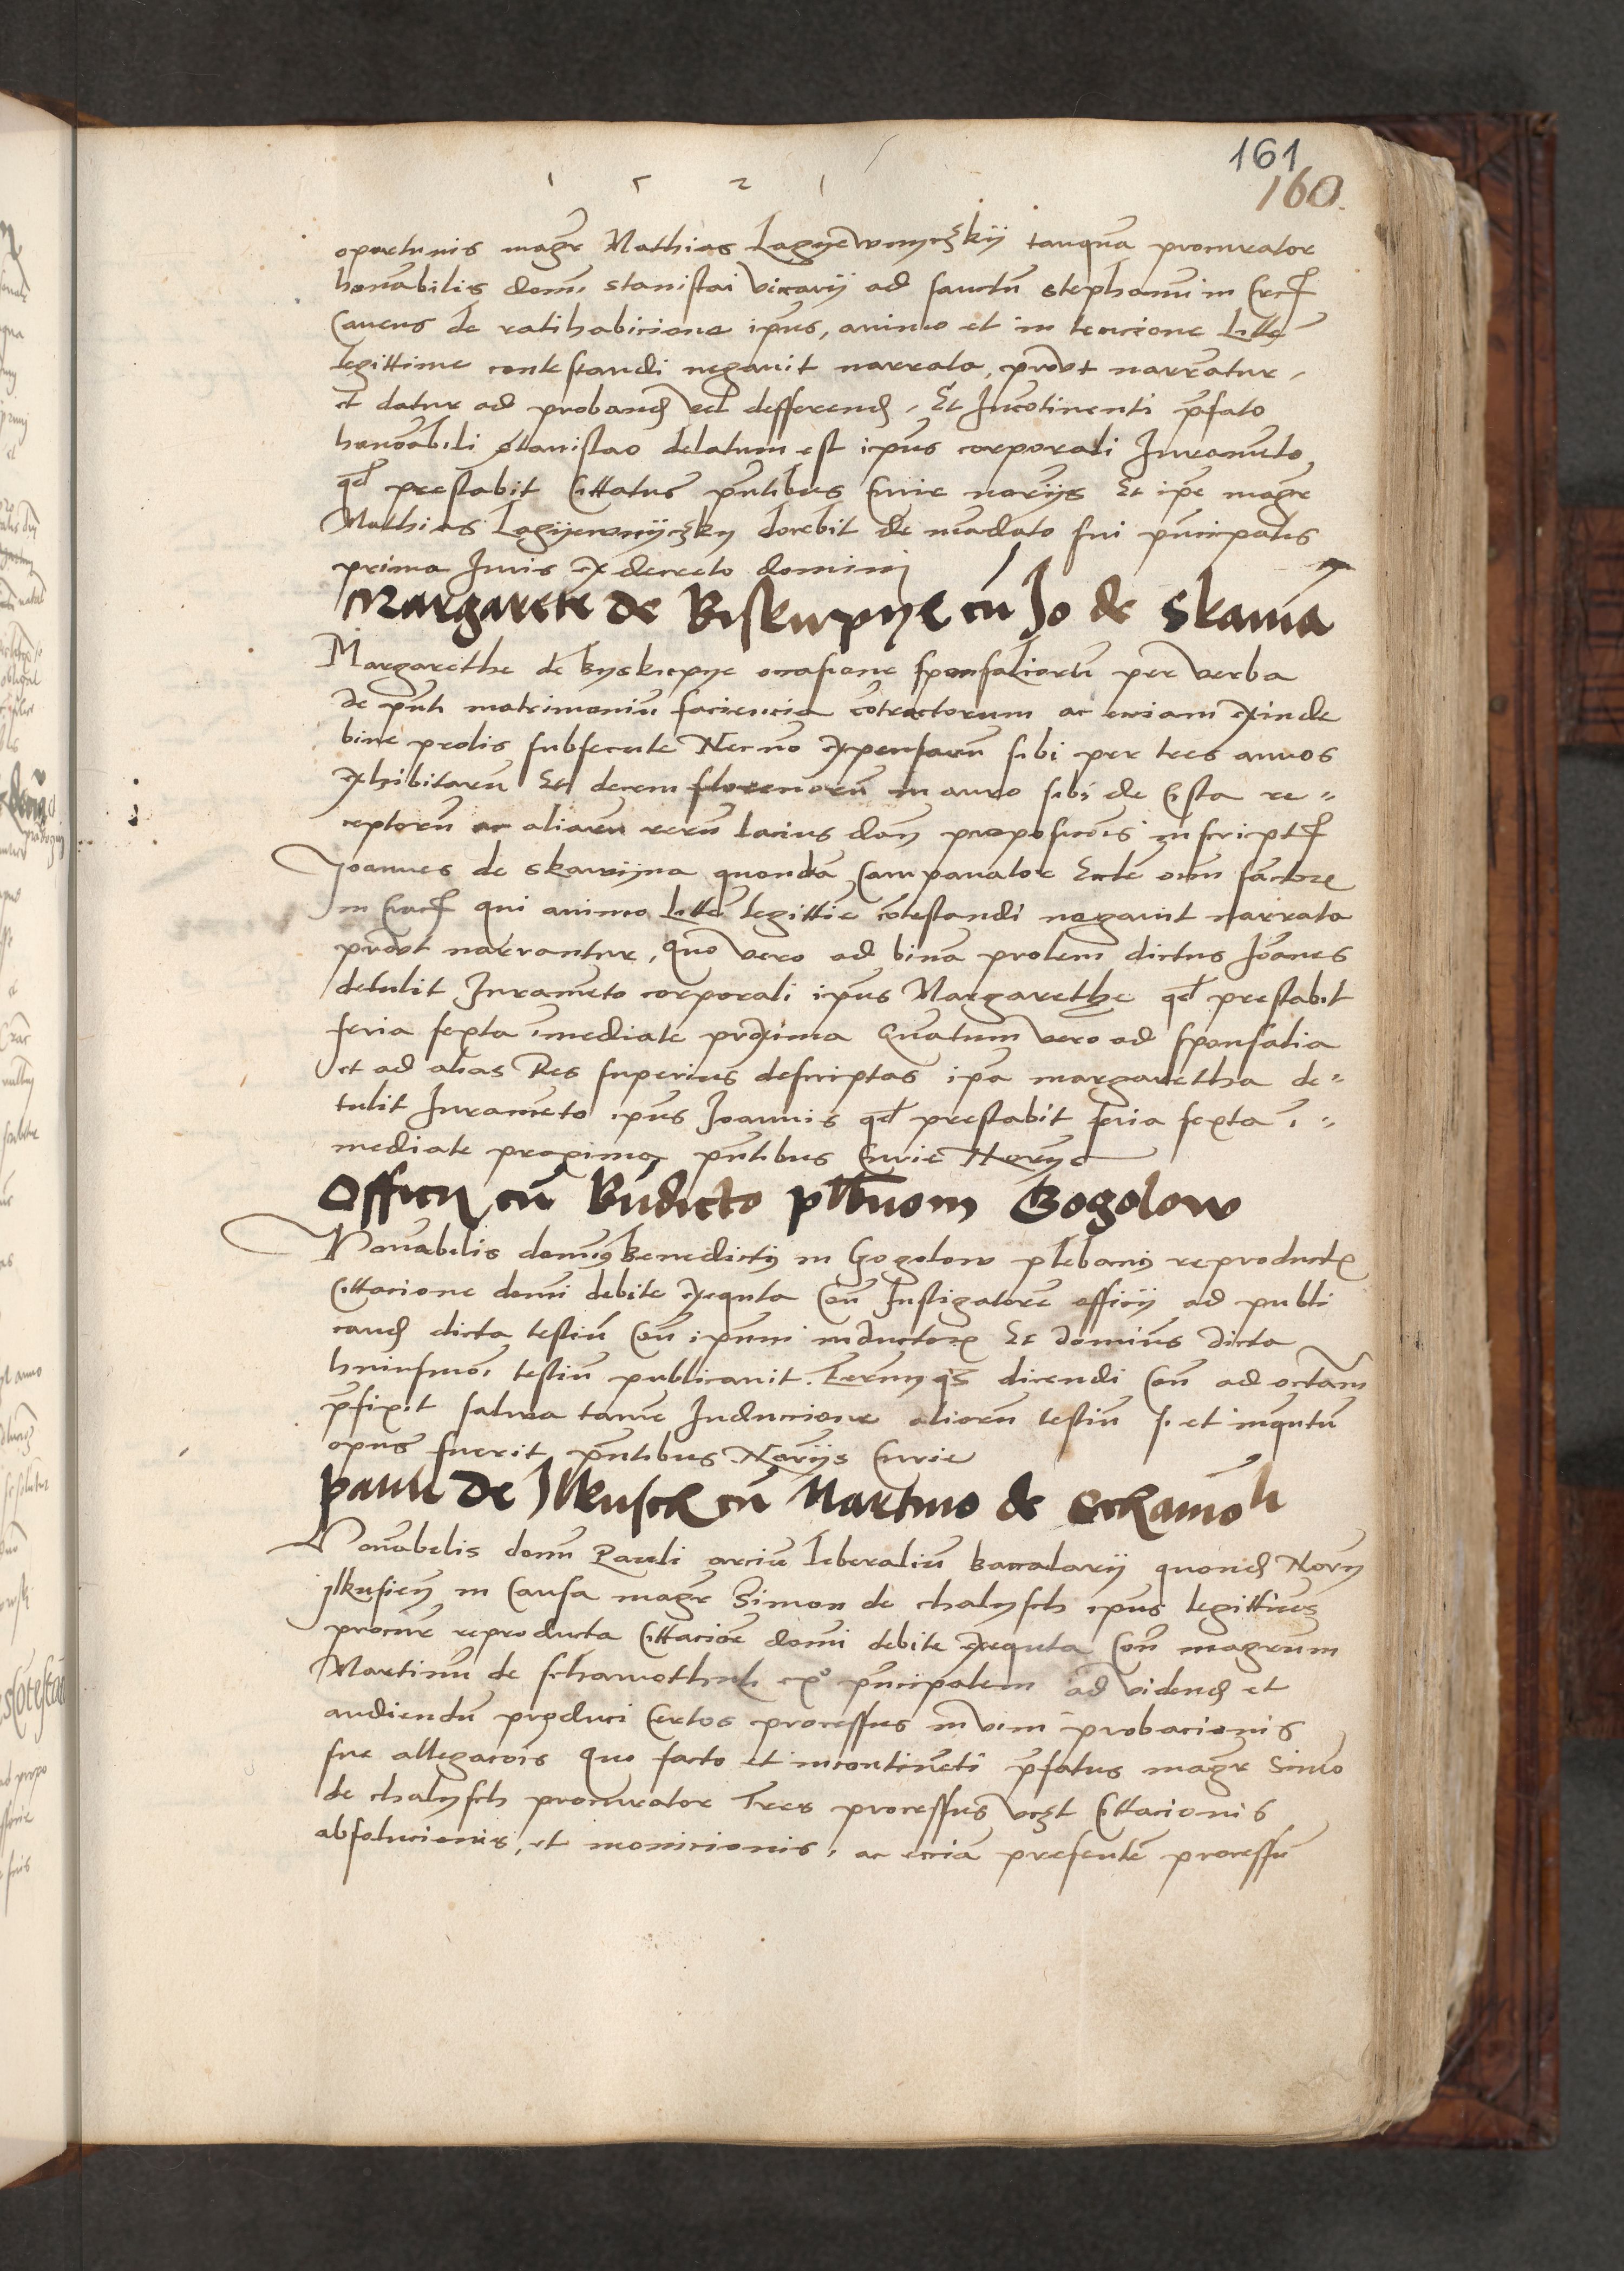 161
160.
1 5 2 1
oportunis magr Mathias Lagyewnyczkij tanqua procurator
honabilis domi stanislai vicarij ad sanctu stephanu in Crac
Cavens de ratihabicione ipius, animo et in tencione litte
legittime contestandi negavit narrata, prout narratur,
et datur ad proband vel defferend, Et Incotinenti pfato
honoabili Stanislao delatum est ipius corporali Iurameto
qd prestabit Cittatus pntibus Curie norijs Et ipe magr
Mathias Lagijewnijczky docebit de madato sui pncipalis
prima Iuris ex decreto domini
Margarete de Biskupye cu Jo de Skavia
Margarethe de byskupye occasione sponsalioru per verba
de pnti matrimoniu faciencia cotractorum ac eciam exinde
bine prolis subsecute Nec no expensaru sibi per tres annos
exhibitaru Et decem florenoru in auro sibi de Cista re-
ceptoru ac aliaru reru lacius dom propositois in script
Joannes de skavijna quonda Campanator Eccle oim sanctor
in Crac qui animo litte legittie cotestandi negavit narrata
prout narrantur, Quo vero ad bina prolem dictus Joanes
detulit Iurameto corporali ipius Margarethe qd prestabit
feria sexta imediate proxima Quatum vero ad sponsalia
et ad alias Res superius descriptas ipa margaretha de-
tulit Iurameto ipius Joannis qd prestabit feria sexta i-
mediate proxima pntibus Curie Norijs
Officij cu Bndicto plbno in Gogolow
Honabilis domius benedictus in Gogolow plebanus reproducta
Cittacione domi debite exequta Con Instigatore officij ad publi
cand dicta testiu Con ipum inductor Et dominus dicta
huiusmoi testiu publicavit. Terminuqs dicendi Con ad octam
pfixit salva tame Inductione alioru testiu si et inqutu
opus fuerit pntibus Norijs Curie
Pauli de Ilkusch cu Martino de Schamoli
Honabilis domi Pauli arciu liberaliu baccalarij quond Norij
jlkusien in Causa magr Simon de chalysch ipius legittius
procur reproducta Cittacioe domi debite exequta Con magrum
Martinu de schamothuli ex pncipalem ad vidend et
audiendu produci Certos processus in vim probacionis
sue allegacois Quo facto et incontineti pfatus magr Simo
de chalysch procurator Tres processus vczt Cittacionis
absolucionis, et monicionis, ac ecia presente processu